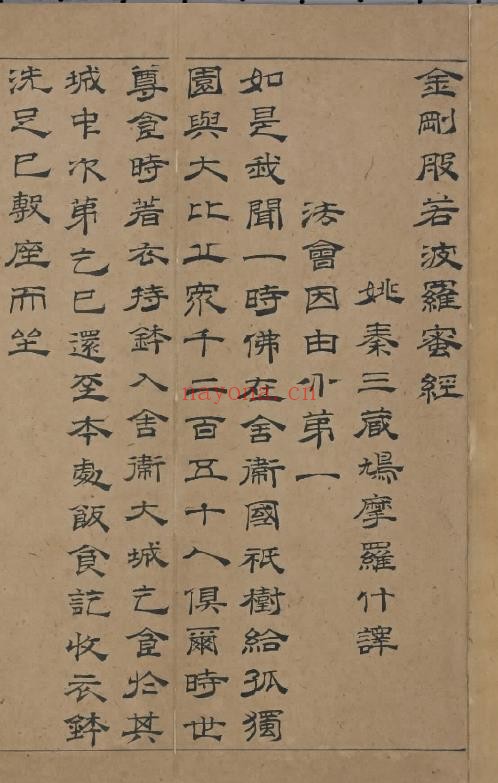 金剛般若波羅蜜經
姚秦三藏鳩摩羅什譯
法會因由分第一
如是我聞一時佛在舍衛國祇樹給孤獨
園與大比丘眾千二百五十人俱爾時世
尊食時着衣持鉢入舍衛大城乞食於其
城中次第乞已還至本處飯食訖收衣鉢
洗足已敷座而坐
nayona.cn